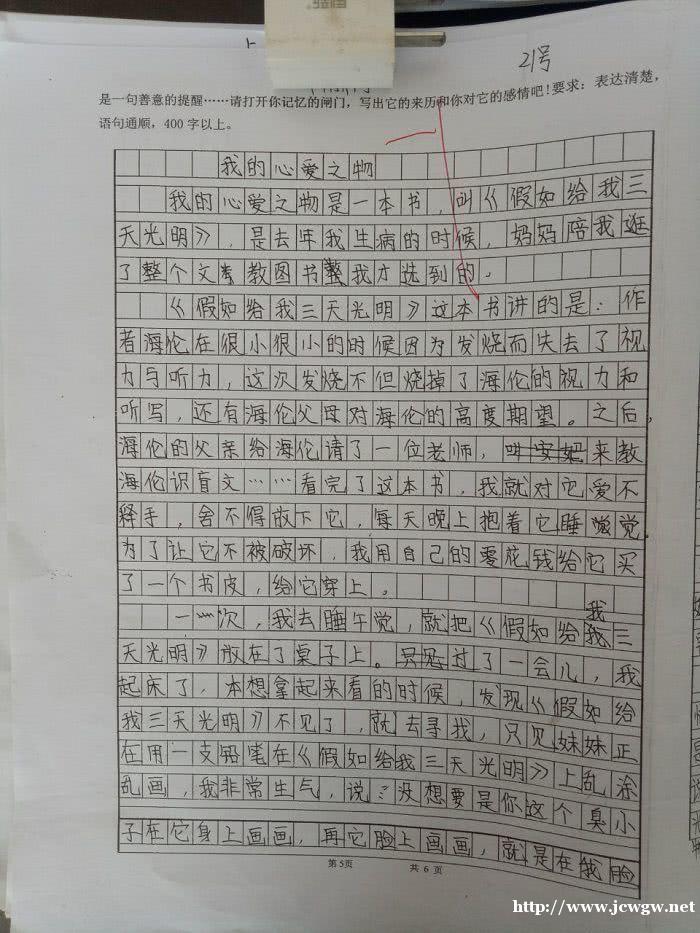 21号
是一句善意的提醒……请打开你记忆的闸门，写出它的来历和你对它的感情吧！要求：表达清楚，
语句通顺，400字以上。
我的心爱之物
我的心爱之物是一本书，叫《假如给我三
天光明》，是去年我生病的时候，妈妈陪我逛
了整个文教图书我才选到的。
《假如给我三天光明》这本书讲的是：作
者海伦在很小很小的时候因为发烧而失去了视
力与听力，这次发烧不但烧掉了海伦的视力和
听写，还有海伦父母对海伦的高度期望。之后，
海伦的父亲给海伦请了一位老师，来教
海伦识盲文……看完了这本书，我就对它爱不
释手，舍不得放下它，每天晚上抱着它睡觉
为了让它不被破坏，我用自己的零花钱给它买
了一个书皮，给它穿上。
一次，我去睡午觉，就把《假如给我三
天光明》放在了桌子上。只见过了一会儿，我
起床了，本想拿起来看的时候，发现《假如给
我三天光明》不见了，就去寻找，只见妹妹正
在用一支铅笔在《假如给我三天光明》上乱涂
乱画，我非常生气，说：没想要是你这个臭小
子在它身上画画，再它脸上画画，就是在我脸
第5页 共6页
http://www.jcwgw.net